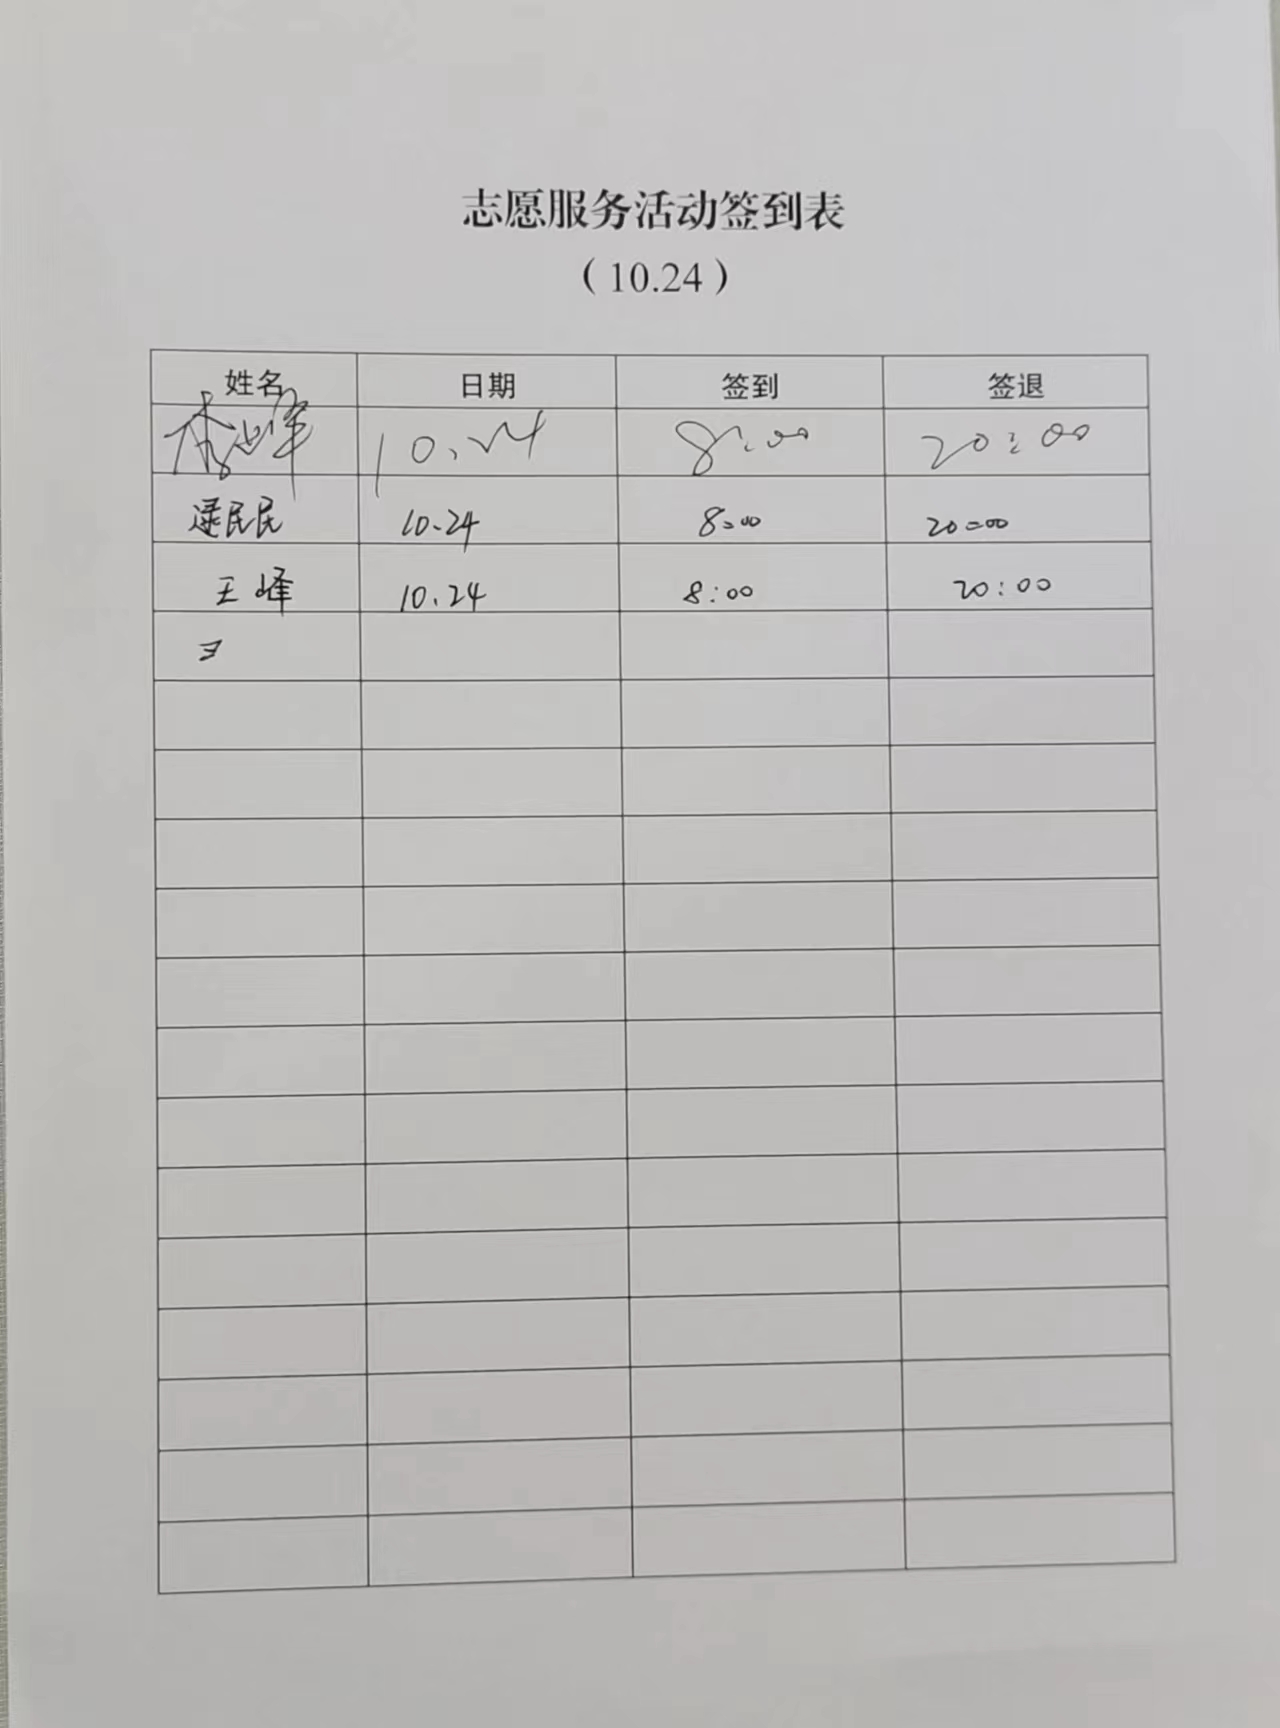 志愿服务活动签到表
（10.24）
姓名 日期 签到 签退
10.24 8:00 20:00
民民 10.24 8:00 20:00
王峰 10.24 8:00 20:00